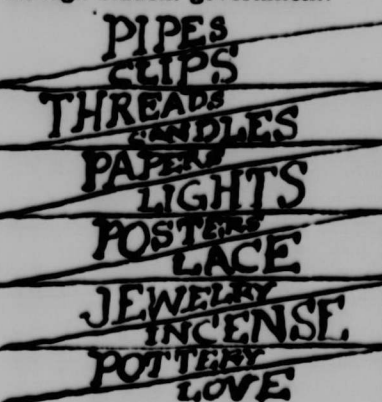 PIPES
CLIPS
THREADS
CANDLES
PAPERS
LIGHTS
POSTERS
LACE
JEWELRY
INCENSE
POTTERY
LOVE